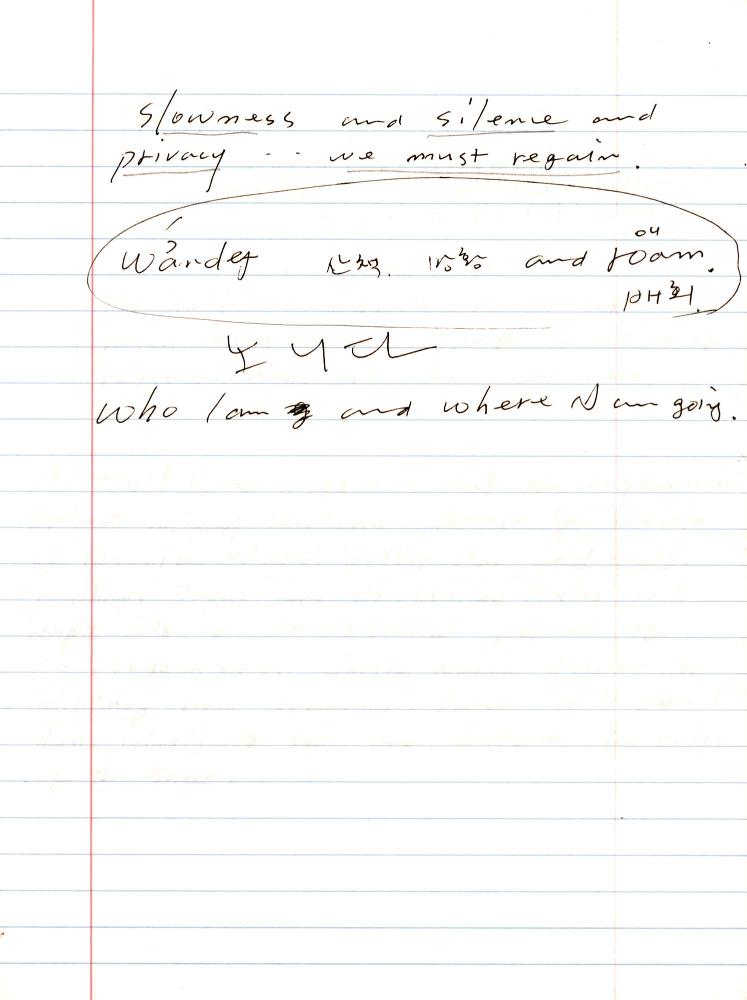 slowness and silence and
privacy .. we must regain.
wander 산책. 방황 and roam.
배회.
노니다
who I am and where I am going.